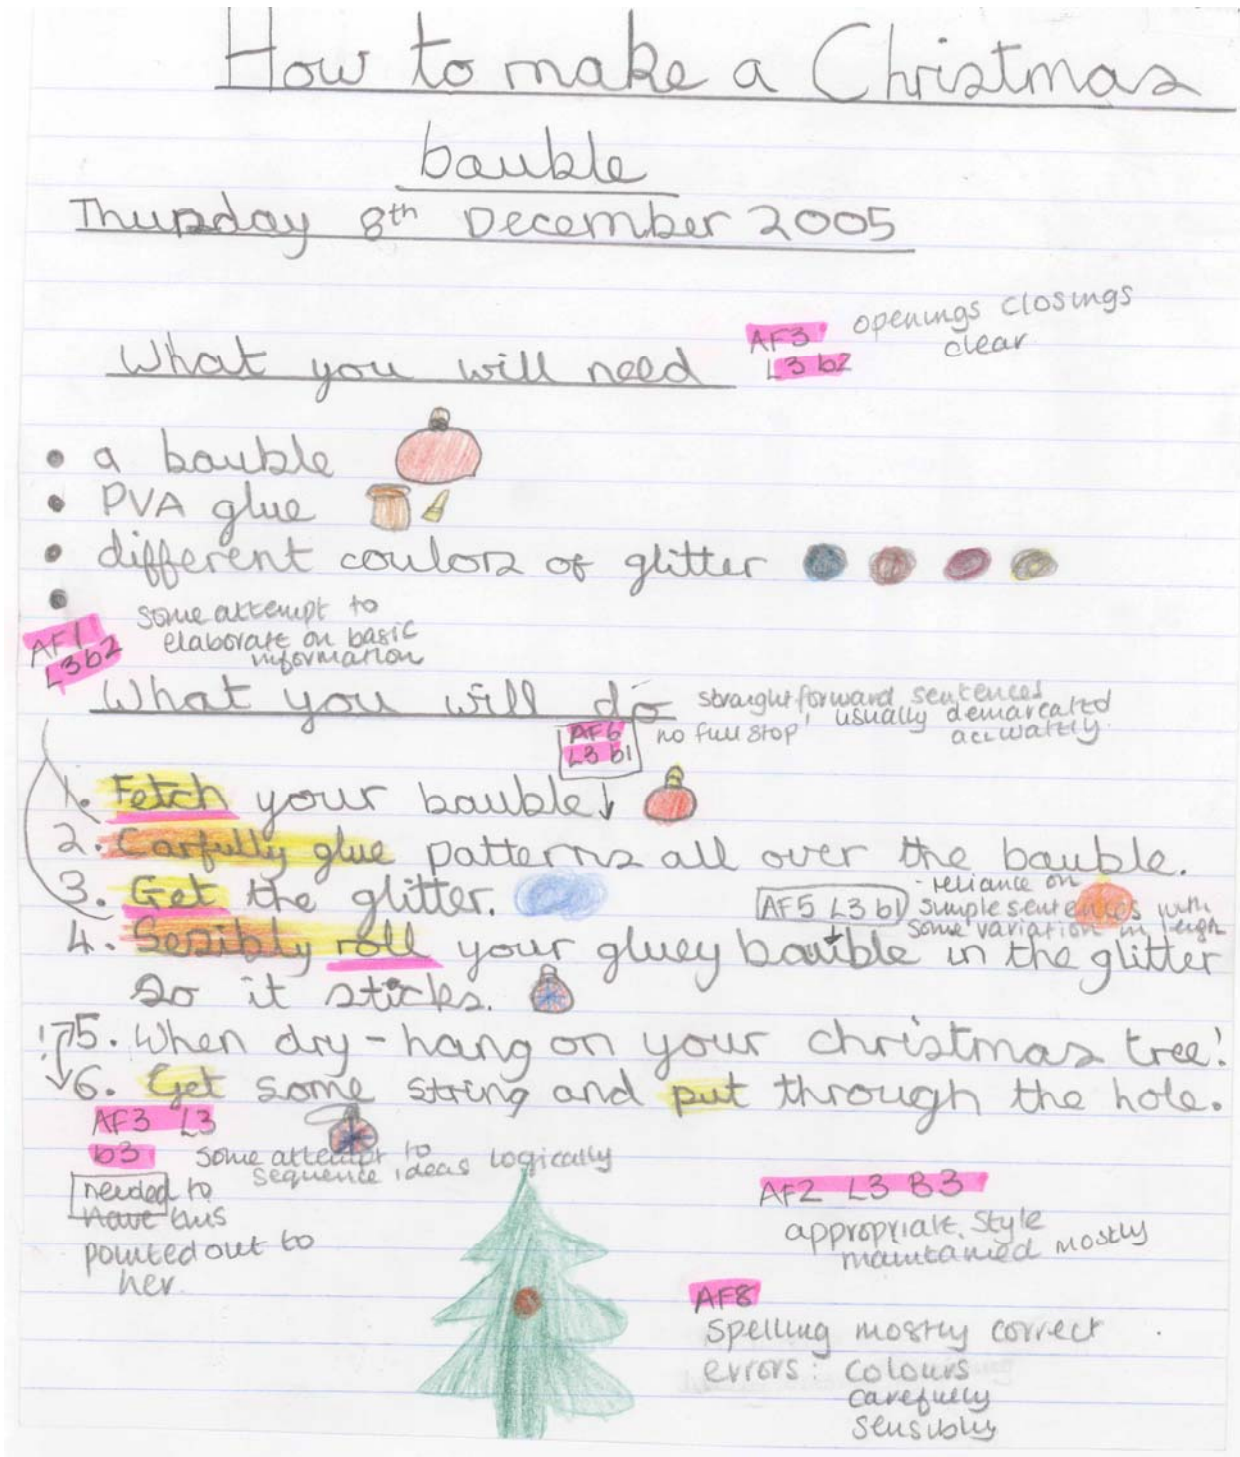 How to make a Christmas
bauble
Thursday 8th December 2005
AF3 openings closings
L3 b2 clear
What you will need
• a bauble
• PVA glue
• different coulors of glitter
•
AF1 some attempt to
L3b2 elaborate on basic
information
What you will do
straightforward sentences
usually demarcated
accurately.
AF6 no full stop
L3 b1
1. Fetch your bauble
2. Carfully glue patterns all over the bauble.
3. Get the glitter.
AF5 L3 b1 - reliance on
simple sentences with
some variation in length
4. Sesibly roll your gluey bauble in the glitter
so it sticks.
5. When dry - hang on your christmas tree!
6. Get some string and put through the hole.
AF3 L3
b3 some attempt to
sequence ideas logically
needed to
have this
pointed out to
her.
AF2 L3 B3
appropriate style
maintained mostly
AF8
spelling mostly correct
errors: colours
carefully
sensibly